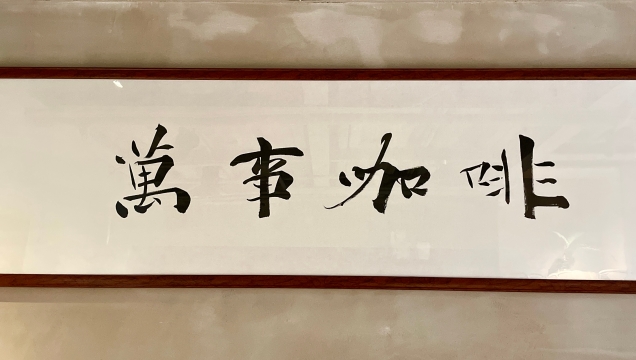 萬事咖啡